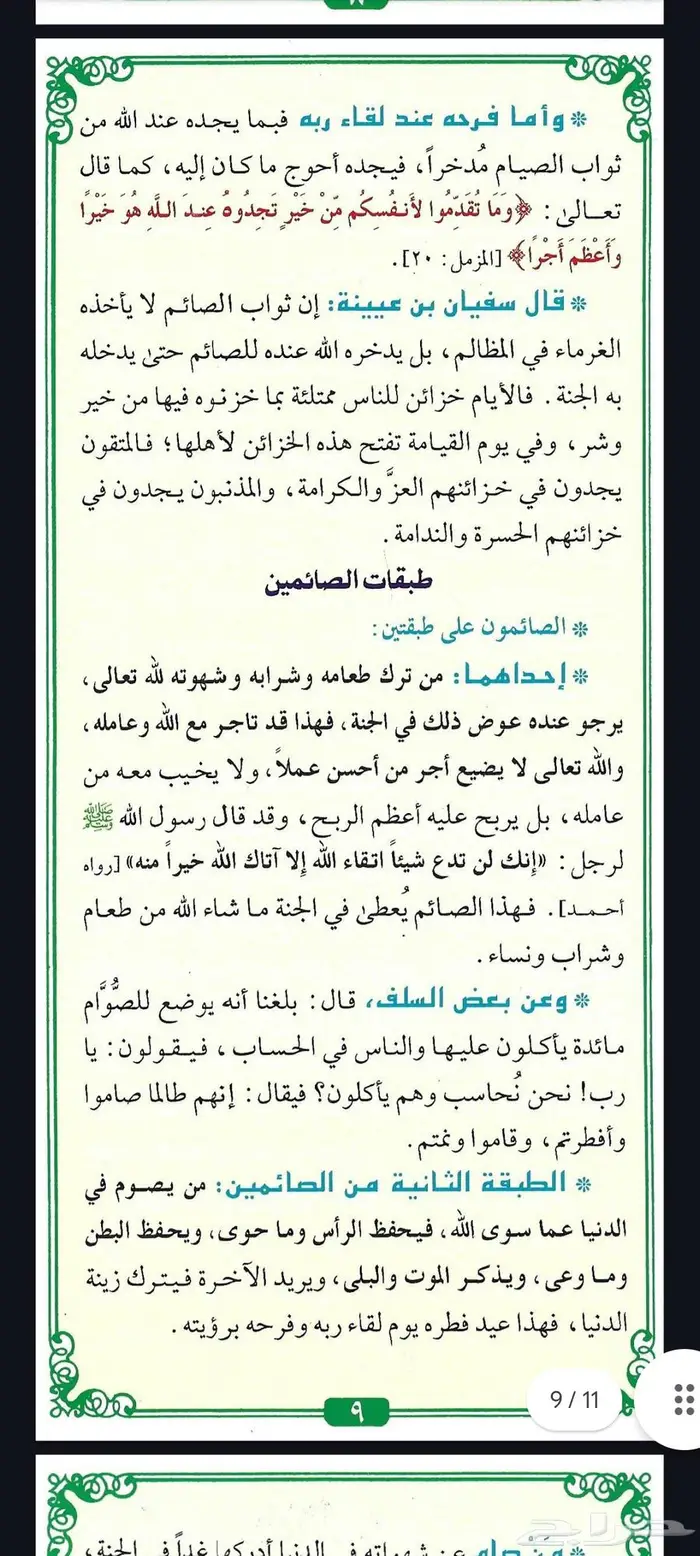 * وأما فرحه عند لقاء ربه فبما يجده عند الله من
ثواب الصيام مُدخراً، فيجده أحوج ما كان إليه، كما قال
تعالىٰ: ﴿وَمَا تُقَدِّمُوا لأَنفُسِكُم مِّنْ خَيْرٍ تَجِدُوهُ عِندَ اللَّهِ هُوَ خَيْرًا
وَأَعْظَمَ أَجْرًا﴾ [المزمل: ٢٠].
* قال سفيان بن عيينة: إن ثواب الصائم لا يأخذه
الغرماء في المظالم، بل يدخره الله عنده للصائم حتىٰ يدخله
به الجنة. فالأيام خزائن للناس ممتلئة بما خزنوه فيها من خير
وشر، وفي يوم القيامة تفتح هذه الخزائن لأهلها؛ فالمتقون
يجدون في خزائنهم العزَّ والكرامة، والمذنبون يجدون في
خزائنهم الحسرة والندامة.
طبقات الصائمين
* الصائمون على طبقتين:
* إحداهما: من ترك طعامه وشرابه وشهوته لله تعالى،
يرجو عنده عوض ذلك في الجنة، فهذا قد تاجر مع الله وعامله،
والله تعالى لا يضيع أجر من أحسن عملاً، ولا يخيب معه من
عامله، بل يربح عليه أعظم الربح، وقد قال رسول الله ﷺ
لرجل: «إنك لن تدع شيئاً اتقاء الله إلا آتاك الله خيراً منه» [رواه
أحمد]. فهذا الصائم يُعطىٰ في الجنة ما شاء الله من طعام
وشراب ونساء.
* وعن بعض السلف، قال: بلغنا أنه يوضع للصُّوَّام
مائدة يأكلون عليها والناس في الحساب، فيقولون: يا
رب! نحن نُحاسب وهم يأكلون؟ فيقال: إنهم طالما صاموا
وأفطرتم، وقاموا ونمتم.
* الطبقة الثانية من الصائمين: من يصوم في
الدنيا عما سوى الله، فيحفظ الرأس وما حوى، ويحفظ البطن
وما وعى، ويذكر الموت والبلى، ويريد الآخرة فيترك زينة
الدنيا، فهذا عيد فطره يوم لقاء ربه وفرحه برؤيته.
9 / 11
٩
حراج
عن شهواته في الدنيا أدركها غداً في الجنة،